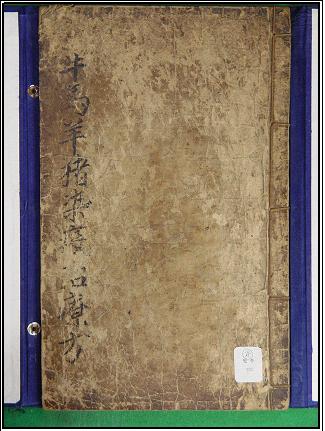 牛馬羊猪染疫治療方